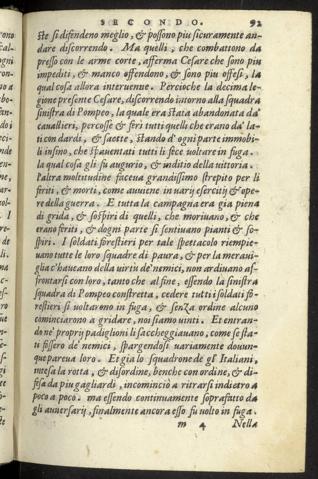 SECONDO. 92
ste si difendeno meglio, & possono piu sicuramente an-
dare discorrendo. Ma quelli, che combattono da
presso con le arme corte, afferma Cesare che sono piu
impediti, & manco offendono, & sono piu offesi, la
qual cosa allora interuenne. Percioche la decima le-
gione presente Cesare, discorrendo intorno alla squadra
sinistra di Pompeo, la quale era stata abandonata da'
cauallieri, percosse & feri tutti quelli che erano da' la-
ti con dardi, & saette, stando d'ogni parte immobi-
li insino, che spauentati tutti li fece uoltare in fuga.
la qual cosa gli fu augurio, & inditio della uittoria.
l'altra moltitudine faceua grandissimo strepito per li
feriti, & morti, come auuiene in varij eserciti & ope-
re della guerra. E tutta la campagna era gia piena
di grida, & sospiri di quelli, che moriuano, & che
erano feriti, & d'ogni parte si sentiuano pianti & so-
spiri. I soldati forestieri per tale spettacolo riempie-
uano tutte le loro squadre di paura, & per la meraui-
glia c'haueano della uirtu de' nemici, non ardiuano af-
frontarsi con loro, tanto che al fine, essendo la sinistra
squadra di Pompeo constretta, cedere tutti i soldati fo-
restieri si uoltarono in fuga, & senza ordine alcuno
cominciarono a gridare, noi siamo uinti. Et entran-
do ne' proprij padiglioni li saccheggiauano, come se sta-
ti fossero de' nemici, spargendosi uariamente douun-
que pareua loro. Et gia lo squadrone de gl' Italiani,
intesa la rotta, & disordine, benche con ordine, & di-
fesa da piu gagliardi, incominciò a ritrarsi indietro a
poco a poco. ma essendo continuamente soprafatto da
gli auuersarij, finalmente ancora esso fu uolto in fuga.
m 4 Nella